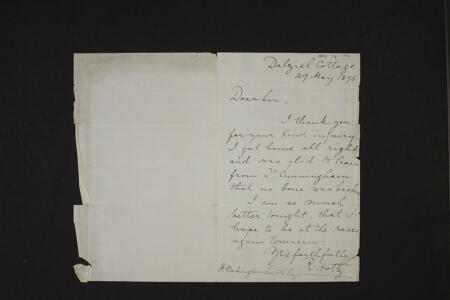 Dalziel Cottage
29 May 1896
Dear Sir,
I thank you
for your kind inquiry.
I got home all right
and was glad to learn
from Dr. Cunningham
that no bone was broken
I am so much
better tonight, that I
hope to be at the race
again tomorrow.
Yrs faithfully
R. Hotz